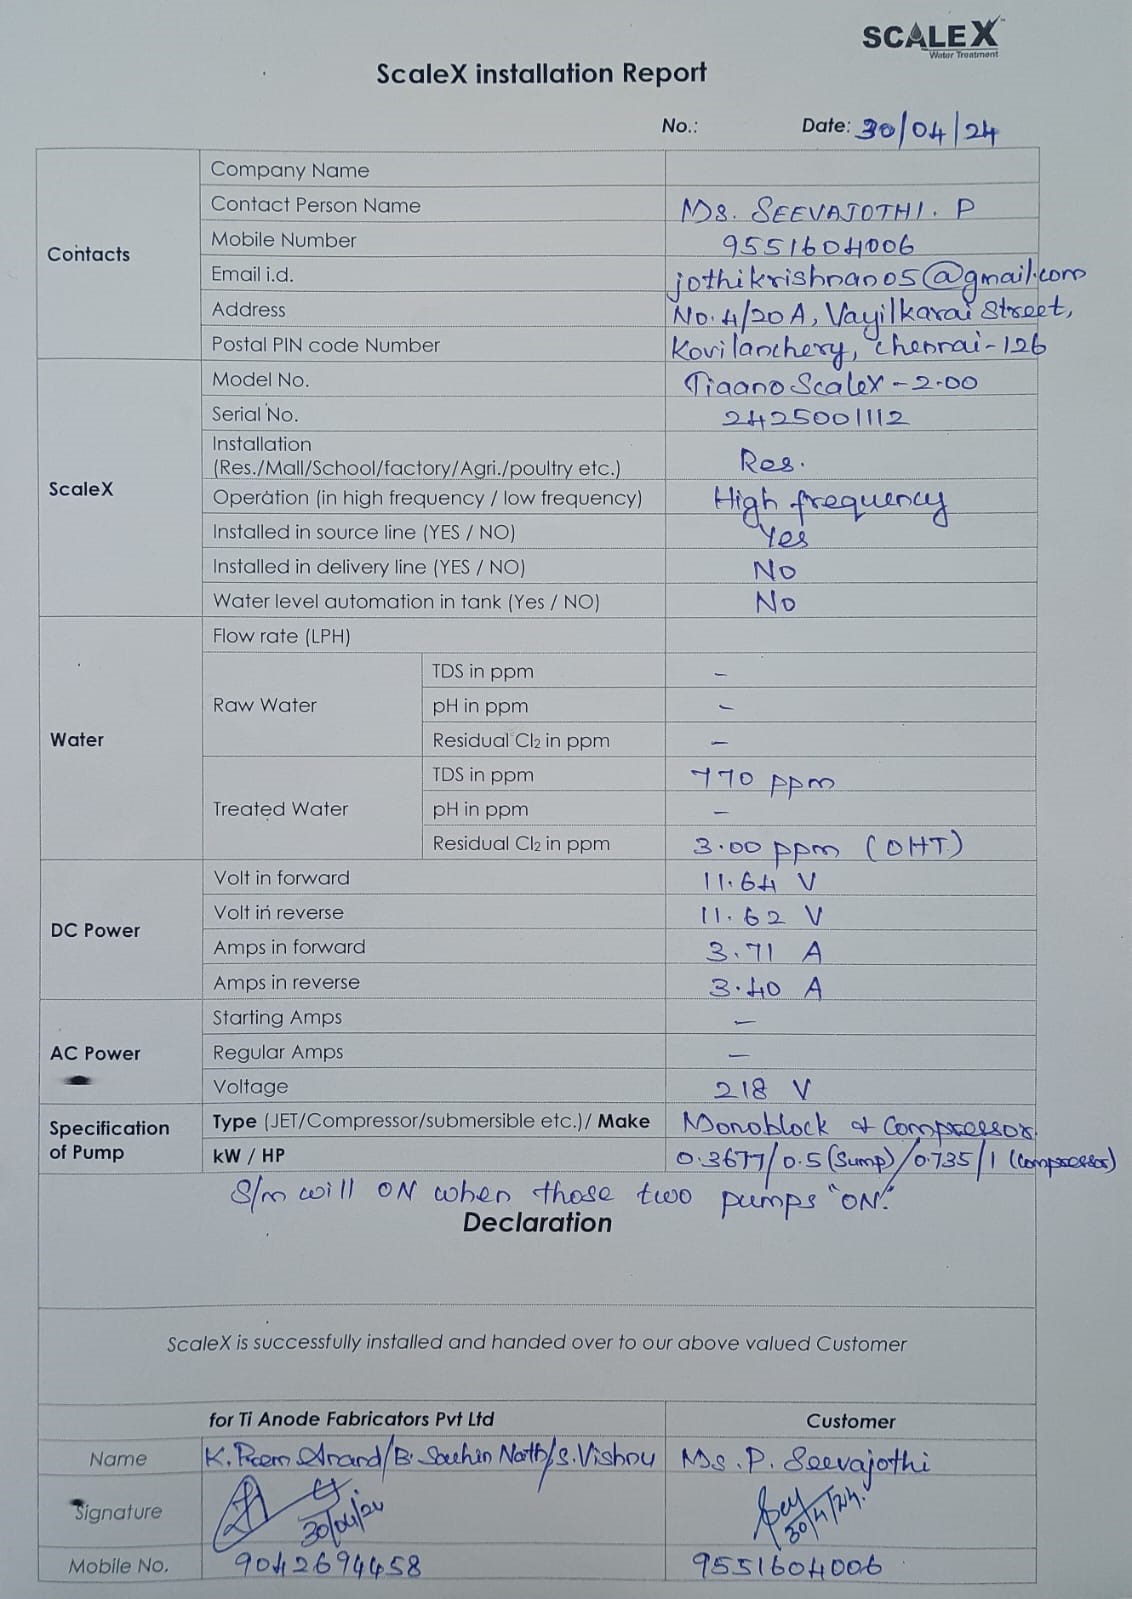 SCALEX
Water Treatment
ScaleX installation Report
No.: Date: 30/04/24
Contacts
Company Name
Contact Person Name Ms. SEEVAJOTHI. P
Mobile Number 9551604006
Email i.d. jothikrishnan05@gmail.com
Address No. 4/20 A, Vayilkarai Street,
Postal PIN code Number Kovilanchery, Chennai-126
ScaleX
Model No. Tiaano ScaleX - 2.00
Serial No. 2425001112
Installation
(Res./Mall/School/factory/Agri./poultry etc.) Res.
Operation (in high frequency / low frequency) High frequency
Installed in source line (YES / NO) Yes
Installed in delivery line (YES / NO) No
Water level automation in tank (Yes / NO) No
Water
Flow rate (LPH)
Raw Water
TDS in ppm -
pH in ppm -
Residual Cl2 in ppm -
Treated Water
TDS in ppm 770 ppm
pH in ppm -
Residual Cl2 in ppm 3.00 ppm (OHT)
DC Power
Volt in forward 11.64 V
Volt in reverse 11.62 V
Amps in forward 3.71 A
Amps in reverse 3.40 A
AC Power
Starting Amps -
Regular Amps -
Voltage 218 V
Specification
of Pump
Type (JET/Compressor/submersible etc.)/ Make Monoblock & Compressor
kW / HP 0.3677/0.5 (Sump)/0.735/1 (Compressor)
S/m will ON when those two pumps "ON."
Declaration
ScaleX is successfully installed and handed over to our above valued Customer
for Ti Anode Fabricators Pvt Ltd Customer
Name K. Prem Anand/B. Sachin Nath/S. Vishnu Ms. P. Seevajothi
Signature 30/04/24 30/4/24.
Mobile No. 9042694458 9551604006